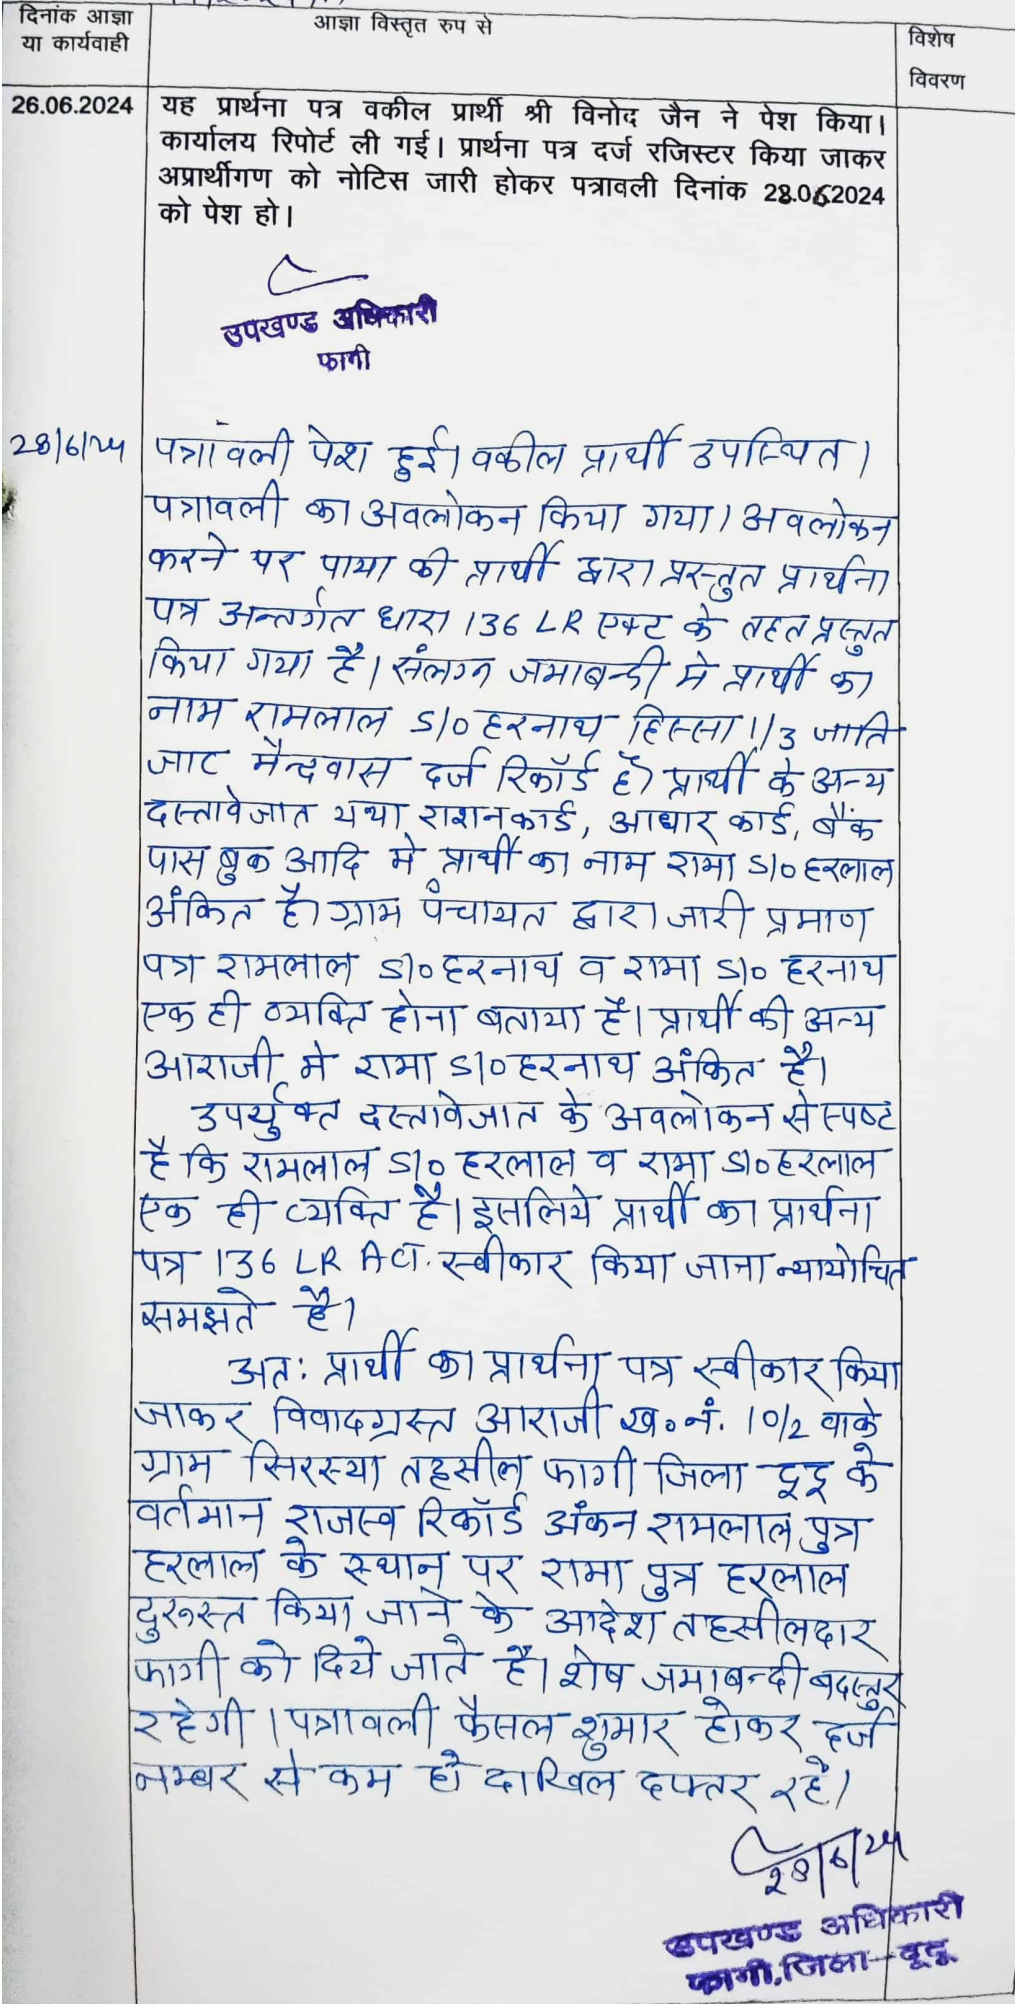 दिनांक आज्ञा
या कार्यवाही
आज्ञा विस्तृत रुप से
विशेष
विवरण
26.06.2024
यह प्रार्थना पत्र वकील प्रार्थी श्री विनोद जैन ने पेश किया।
कार्यालय रिपोर्ट ली गई। प्रार्थना पत्र दर्ज रजिस्टर किया जाकर
अप्रार्थीगण को नोटिस जारी होकर पत्रावली दिनांक 28.06.2024
को पेश हो।
उपखण्ड अधिकारी
फागी
28/6/24
पत्रावली पेश हुई। वकील प्रार्थी उपस्थित।
पत्रावली का अवलोकन किया गया। अवलोकन
करने पर पाया की प्रार्थी द्वारा प्रस्तुत प्रार्थना
पत्र अन्तर्गत धारा 136 LR एक्ट के तहत प्रस्तुत
किया गया है। संलग्न जमाबन्दी मे प्रार्थी का
नाम रामलाल S/o हरनाथ हिस्सा 1/3 जाति
जाट मैन्दवास दर्ज रिकॉर्ड है। प्रार्थी के अन्य
दस्तावेजात यथा राशनकार्ड, आधार कार्ड, बैंक
पास बुक आदि मे प्रार्थी का नाम रामा S/o हरलाल
अंकित है। ग्राम पंचायत द्वारा जारी प्रमाण
पत्र रामलाल S/o हरनाथ व रामा S/o हरनाथ
एक ही व्यक्ति होना बताया है। प्रार्थी की अन्य
आराजी मे रामा S/o हरनाथ अंकित है।
उपर्युक्त दस्तावेजात के अवलोकन से स्पष्ट
है कि रामलाल S/o हरलाल व रामा S/o हरलाल
एक ही व्यक्ति है। इसलिये प्रार्थी का प्रार्थना
पत्र 136 LR Act. स्वीकार किया जाना न्यायोचित
समझते है।
अतः प्रार्थी का प्रार्थना पत्र स्वीकार किया
जाकर विवादग्रस्त आराजी ख॰नं. 10/2 वाके
ग्राम सिरस्या तहसील फागी जिला दूदू के
वर्तमान राजस्व रिकॉर्ड अंकन रामलाल पुत्र
हरलाल के स्थान पर रामा पुत्र हरलाल
दुरूस्त किया जाने के आदेश तहसीलदार
फागी को दिये जाते है। शेष जमाबन्दी बदस्तुर
रहेगी। पत्रावली फैसल शुमार होकर दर्ज
नम्बर से कम हो दाखिल दफ्तर रहे।
28/6/24
उपखण्ड अधिकारी
फागी, जिला-दूदू